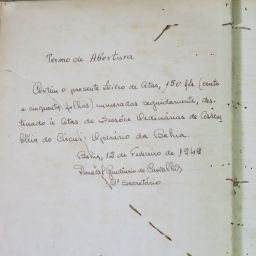 Termo de Abertura
Contém o presente Livro de Atas, 150 fls (cento
e cinquenta folhas) numeradas seguidamente, des-
tinado à Atas de Sessões Ordinárias de Assem
bléia do Circulo Operário da Bahia.
Bahia, 12 de Fevereiro de 1949
de Carvalho
1º Secretário